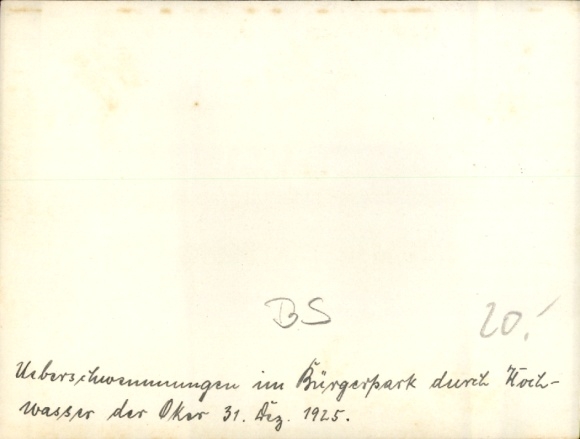 BS
20.-
Ueberschwemmungen im Bürgerpark durch Hoch-
wasser der Oker 31. Dez. 1925.